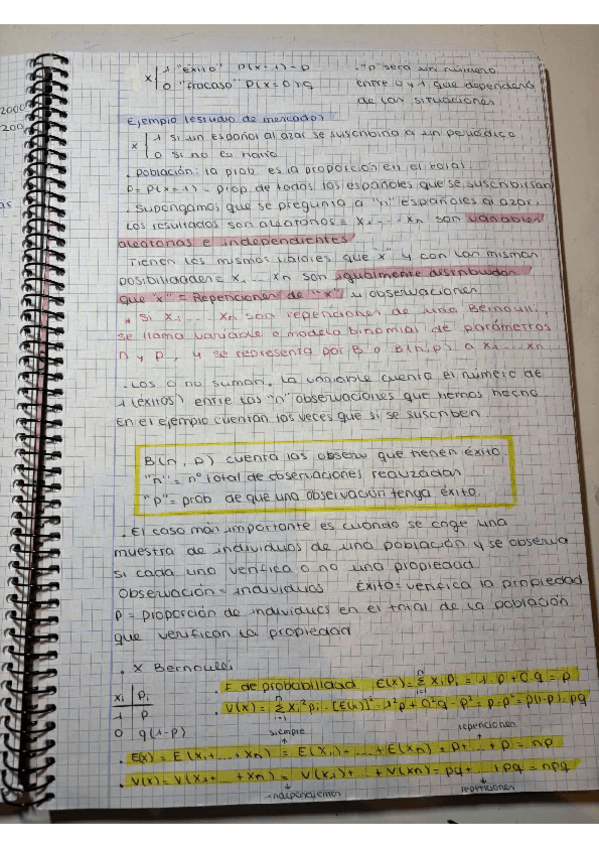 x | 1 "éxito" P(x=1)=p
0 "fracaso" P(x=0)=q
"p" será un número
entre 0 y 1 que dependerá
de las situaciones
Ejemplo (estudio de mercado)
x | 1 si un español al azar se suscribiría a un periódico
0 si no lo haría
. Población: la prob es la proporción en el total
P = P(x=1) = prop. de todos los españoles que se suscribirían
. Supongamos que se pregunta a "n" españoles al azar.
Los resultados son aleatorios = x1 ... xn son variables
aleatorias e independientes
Tienen los mismos valores que "x" y con las mismas
posibilidades = x1 ... xn son igualmente distribuidas
que "x" = Repeticiones de "x" y observaciones
. Si x1 ... xn son repeticiones de una Bernouilli,
se llama variable o modelo binomial de parámetros
n y p, y se representa por B o B(n,p) a x1 ... xn
. Los 0 no suman, la variable cuenta el número de
1 (éxitos) entre las "n" observaciones que hemos hecho
En el ejemplo cuentan las veces que si se suscriben
B(n, p) cuenta las observ que tienen éxito
"n" = nº total de observaciones realizadas
"p" = prob de que una observación tenga éxito.
. El caso más importante es cuando se coge una
muestra de individuos de una población y se observa
si cada uno verifica o no una propiedad
Observación = individuos Éxito = verifica la propiedad
P = proporción de individuos en el total de la población
que verifican la propiedad
. X Bernouilli
xi | pi
1 | p
0 q(1-p)
. F. de probabilidad E(x) = Σ xi pi = 1·p + 0·q = p
. V(x) = Σ xi² pi - [E(x)]² = 1²p + 0²q - p² = p - p² = p(1-p) = pq
siempre repeticiones
. E(x) = E(x1 + ... + xn) = E(x1) + ... + E(xn) = p + ... + p = np
. V(x) = V(x1 + ... + xn) = V(x1) + ... + V(xn) = pq + ... + pq = npq
repeticiones